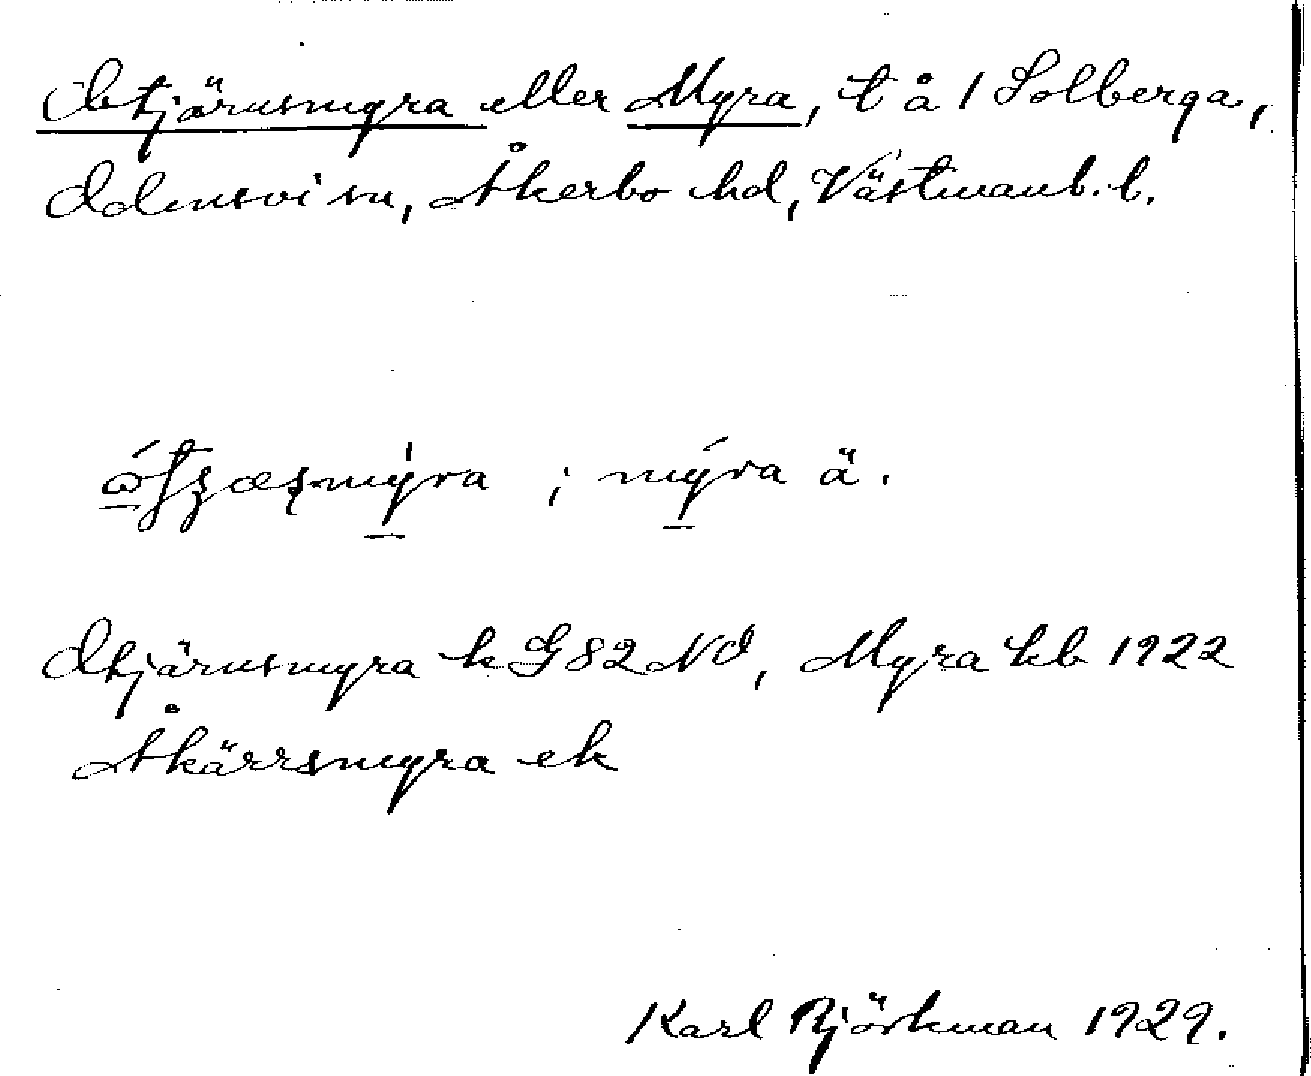 Otjärnsmyra eller Myra, t å 1 Solberga,
Odensvi sn, Åkerbo hd, Västmanl. l.
mýra ä.
Otjärnsmyra k G82 NO, Myra kb 1922
Åkärrsmyra ek
Karl Björkman 1929.